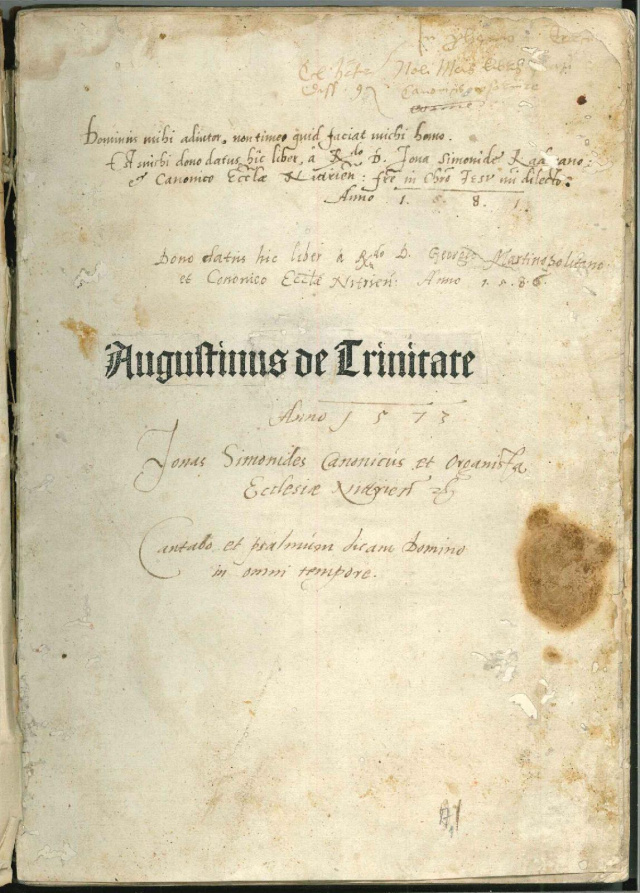 Dominus mihi adiutor, non timeo quid faciat michi homo.
Est michi dono datus hic liber, a R.do D. Jona Simonide
et Canonico Eccłæ Nitrień: fre in Chro Jesu mi dilecto:
Anno 1. 5. 8. 1.
Dono datus hic liber a R.do D. Georgio Martinopolitano
et Canonico Eccłæ Nitrien: Anno 1.5.8.6.
Augustinus de Trinitate
Anno 1 5 7 3
Jonas Simonides Canonicus et Organista
Ecclesiæ Nitrień
Cantabo et psalmum dicam Domino
in omni tempore.